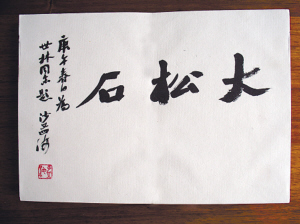 大松石
庚午春日為
世林同志題 沙孟海